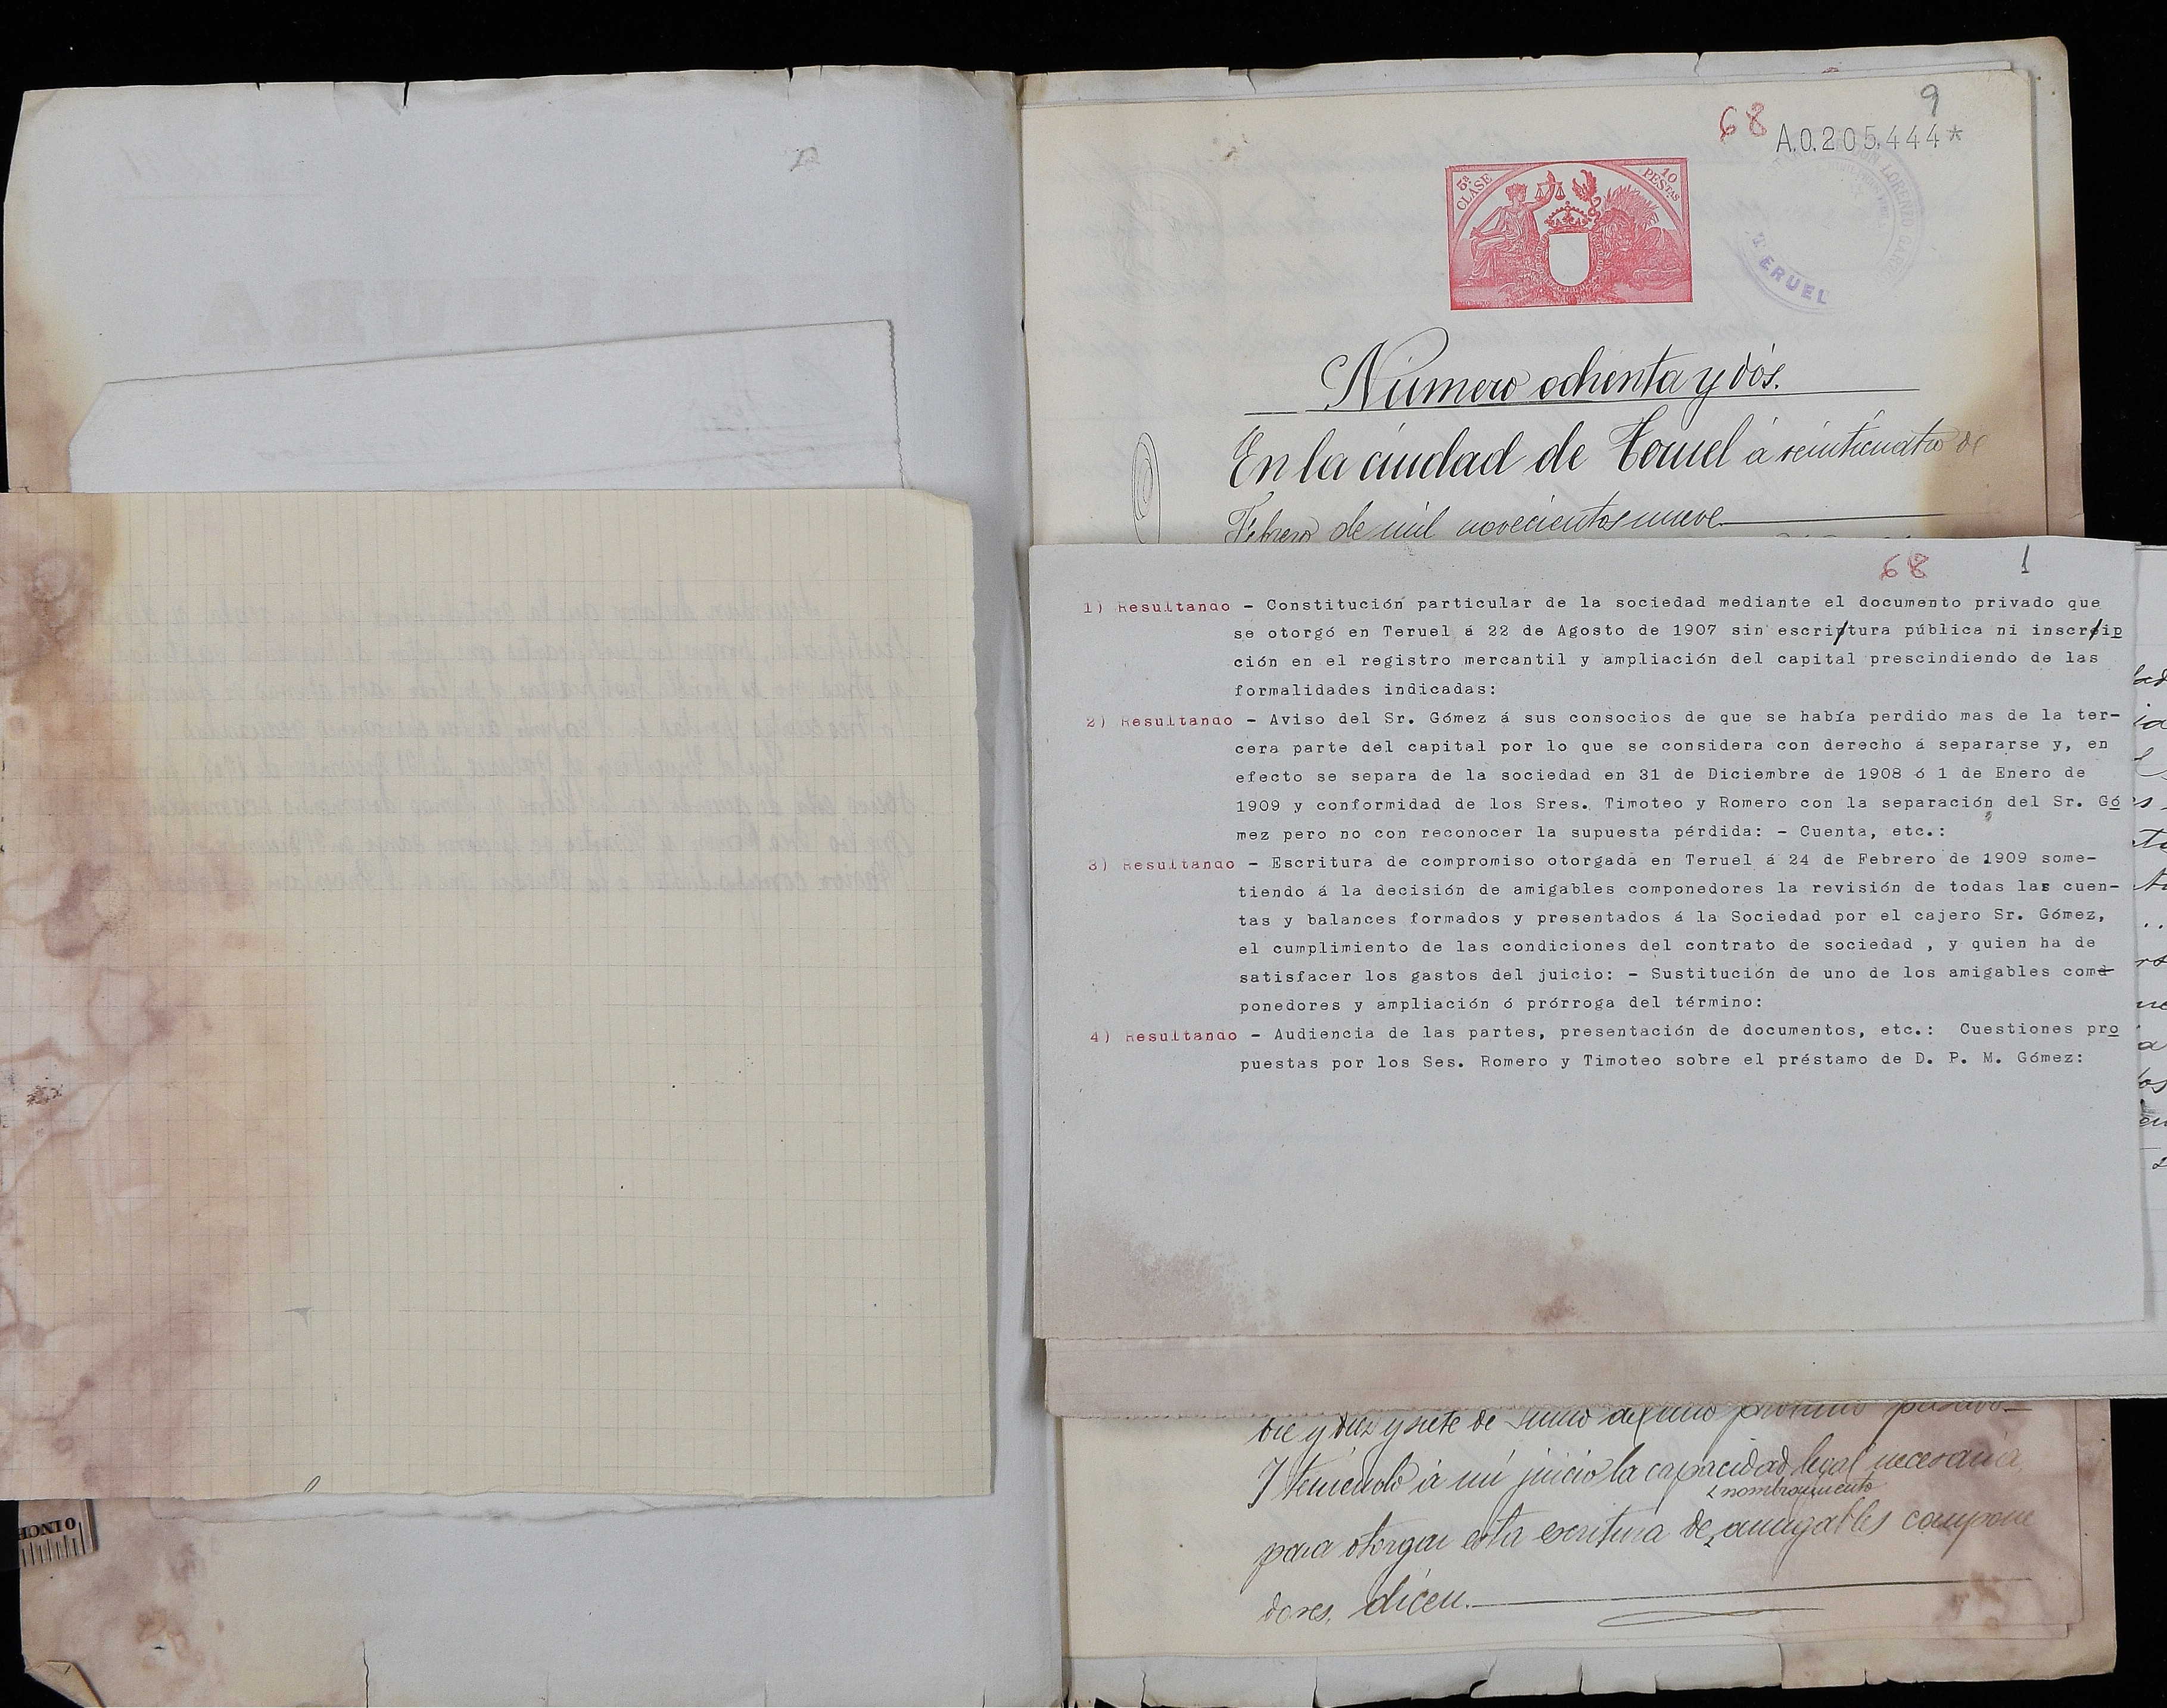 68
9
A.0.205.444*
5ª CLASE
10 PESTAS
LORENZO
TERUEL
Número ochenta y dós.
En la ciudad de Teruel á veinticuatro de
Febrero de mil novecientos nueve
68 1
1) Resultando - Constitución particular de la sociedad mediante el documento privado que
se otorgó en Teruel á 22 de Agosto de 1907 sin escriptura pública ni inscrip
ción en el registro mercantil y ampliación del capital prescindiendo de las
formalidades indicadas:
2) Resultando - Aviso del Sr. Gómez á sus consocios de que se había perdido mas de la ter-
cera parte del capital por lo que se considera con derecho á separarse y, en
efecto se separa de la sociedad en 31 de Diciembre de 1908 ó 1 de Enero de
1909 y conformidad de los Sres. Timoteo y Romero con la separación del Sr. Gó
mez pero no con reconocer la supuesta pérdida: - Cuenta, etc.:
3) Resultando - Escritura de compromiso otorgada en Teruel á 24 de Febrero de 1909 some-
tiendo á la decisión de amigables componedores la revisión de todas las cuen-
tas y balances formados y presentados á la Sociedad por el cajero Sr. Gómez,
el cumplimiento de las condiciones del contrato de sociedad , y quien ha de
satisfacer los gastos del juicio: - Sustitución de uno de los amigables com
ponedores y ampliación ó prórroga del término:
4) Resultando - Audiencia de las partes, presentación de documentos, etc.: Cuestiones pro
puestas por los Ses. Romero y Timoteo sobre el préstamo de D. P. M. Gómez:
bre y diez y siete de Junio del año próximo pasado
Y teniendo á mi juicio la capacidad legal necesaria
nombramiento
para otorgar esta escritura de amigables compone
dores, dicen.